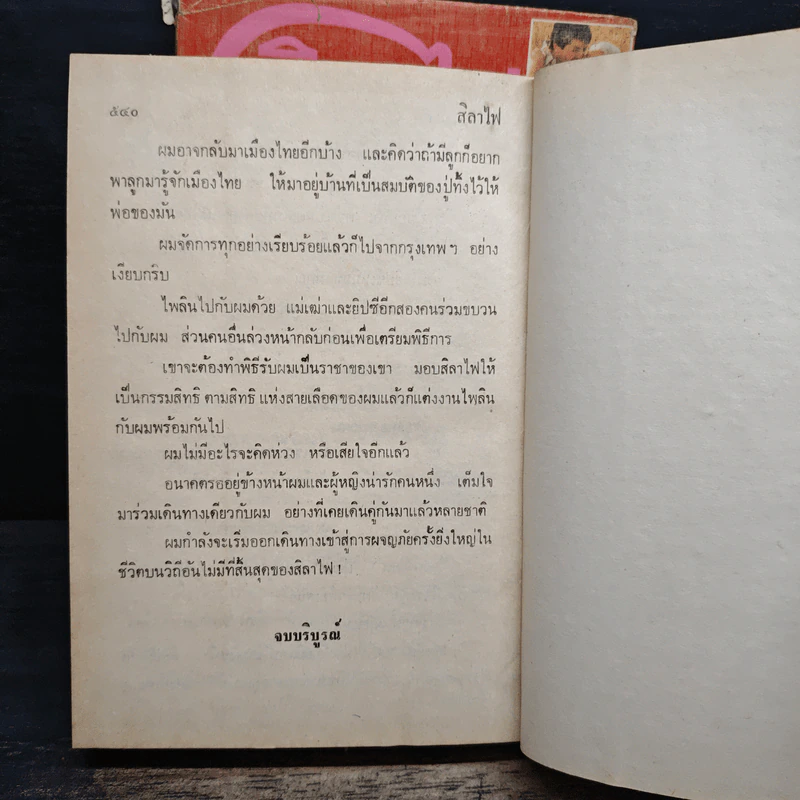 ๕๔๐
สิลาไฟ
ผมอาจกลับมาเมืองไทยอีกบ้าง และคิดว่าถ้ามีลูกก็อยาก
พาลูกมารู้จักเมืองไทย ให้มาอยู่บ้านที่เป็นสมบัติของปู่ทิ้งไว้ให้
พ่อของมัน
ผมจัดการทุกอย่างเรียบร้อยแล้วก็ไปจากกรุงเทพฯ อย่าง
เงียบกริบ
ไพลินไปกับผมด้วย แม่เฒ่าและยิปซีอีกสองคนร่วมขบวน
ไปกับผม ส่วนคนอื่นล่วงหน้ากลับก่อนเพื่อเตรียมพิธีการ
เขาจะต้องทำพิธีรับผมเป็นราชาของเขา มอบสิลาไฟให้
เป็นกรรมสิทธิ ตามสิทธิ แห่งสายเลือดของผมแล้วก็แต่งงานไพลิน
กับผมพร้อมกันไป
ผมไม่มีอะไรจะคิดห่วง หรือเสียใจอีกแล้ว
อนาคตรออยู่ข้างหน้าผมและผู้หญิงน่ารักคนหนึ่ง เต็มใจ
มาร่วมเดินทางเดียวกับผม อย่างที่เคยเดินคู่กันมาแล้วหลายชาติ
ผมกำลังจะเริ่มออกเดินทางเข้าสู่การผจญภัยครั้งยิ่งใหญ่ใน
ชีวิตบนวิถีอันไม่มีที่สิ้นสุดของสิลาไฟ !
จบบริบูรณ์